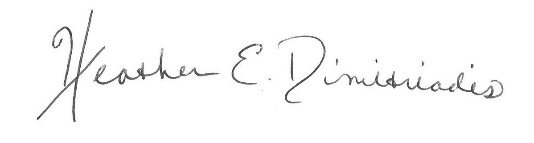 Heather E. Dimitriadis